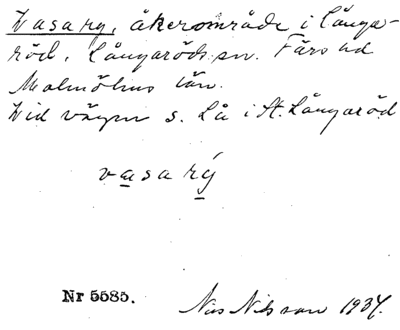 Vasary, åkerområde i Långa-
röd, Långaröds sn. Färs hd
Malmöhus län.
Vid vägen s. Lå i St. Långaröd
vasarý
Nr 5585.
Nils Nilsson 1937.